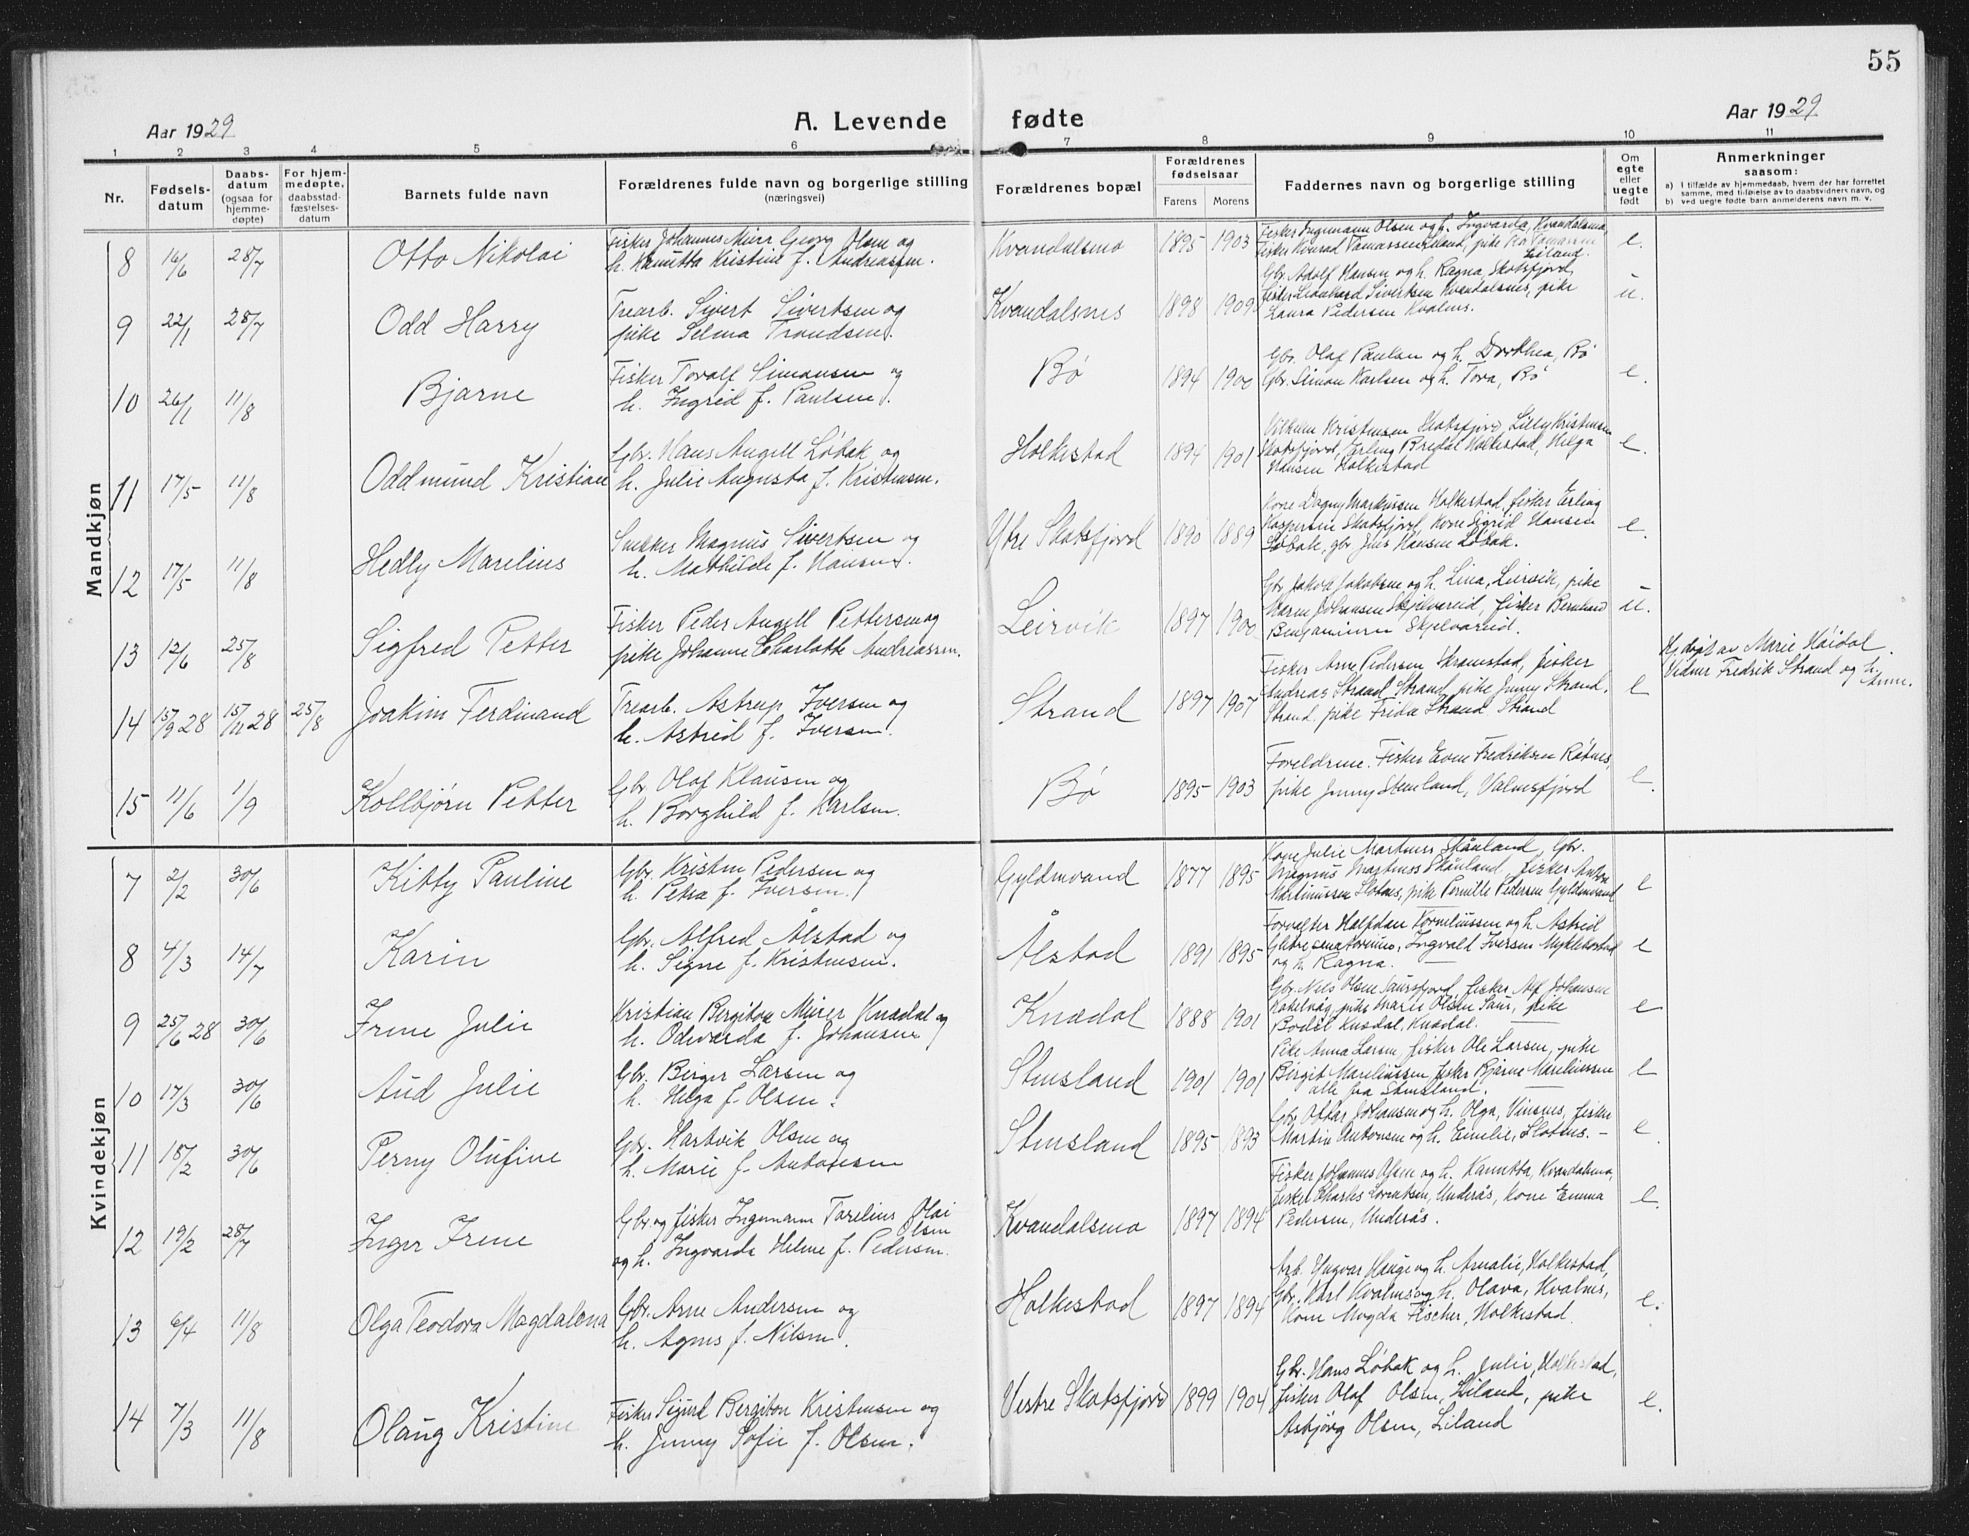 55
Aar 1929
A. Levende fødte
Aar 1929
1 2 3 4 5 6 7 8 9 10 11
Nr.
Fødsels-
datum
Daabs-
datum
(ogsaa for
hjemme-
døpte)
For hjem-
medøpte,
daabsstad-
fæstelses-
datum
Barnets fulde navn
Forældrenes fulde navn og borgerlige stilling
(næringsvei)
Forældrenes bopæl
Forældrenes
fødselsaar
Farens Morens
Faddernes navn og borgerlige stilling
Om
egte
eller
uegte
født
Anmerkninger
saasom:
a) I tilfælde av hjemmedaab, hvem der har forrettet
samme, med tilføielse av to daabsvidners navn, og
b) ved uegte fødte barn anmelderens navn m. v.
Mandkjøn
8 16/6 28/7 Otto Nikolai
Fisker Johannes Georg Olsen og
h. Kanutta Kristine f. Andreassen.
Kvandalsmo 1895 1903
Fisker Ingemann Olsen og h. Ingvarda, Kvandalsmo
Fisker Konrad Tomassen Liland, pike Tomassen
Liland.
e.
9 22/1 28/7 Odd Harry
Trearb. Sivert Sivertsen og
pike Selma Trondsen.
Kvandalsnes 1898 1909
Gbr. Adolf Hansen og h. Ragna, Skotsfjord,
fisker Leonhard Sivertsen Kvandalsnes, pike
Laura Pedersen Kvalnes.
u.
10 26/1 11/8 Bjarne
Fisker Toralf Simonsen og
h. Ingrid f. Paulsen.
Bø 1894 1900
Gbr. Olaf Paulsen og h. Dorthea, Bø
Gbr. Simon Karlsen og h. Tora, Bø
e.
11 17/5 11/8 Oddmund Kristian
Gbr. Hans Angell Løbak og
h. Julie Augusta f. Kristensen.
Holkestad 1894 1901
Kristensen Skotsfjord, Lilly Kristensen
Skotsfjord, Erling Bredal Holkestad, Helga
Hansen Holkestad
e.
12 17/5 11/8 Hedly Marelius
Snekker Magnus Sivertsen og
h. Mathilde f. Hansen.
Ytre Skotsfjord 1890 1889
Kone Dagny Markussen Holkestad, fisker Erling
Kaspersen Skotsfjord, Kone Sigrid Hansen
Løbak, gbr Jens Hansen Løbak.
e.
13 12/6 25/8 Sigfred Petter
Fisker Peder Angell Pettersen og
pike Johanne Charlotte Andreassen.
Leirvik 1897 1900
Gbr Jakob Jakobsen og h. Lina, Leirvik, pike
Maren Johansen Skjelvareid, fisker Bernhard
Benjaminsen Skjelvareid.
u.
14 15/9 28 15/11 28 25/8 Joakim Ferdinand
Trearb. Astrup Iversen og
h. Astrid f. Iversen.
Strand 1897 1907
Fisker Arne Pedersen Skramstad, fisker
Andreas Strand Strand, pike Jenny Strand.
Strand, pike Frida Strand Strand
e
Hj.døpt av Marie Høidal.
Vidner Fredrik Strand og h.
Anne.
15 11/6 1/9 Kolbjørn Petter
Gbr Olaf Klausen og
h. Borghild f. Karlsen.
Bø 1895 1903
Foreldrene. Fisker Even Fredriksen Røtnes,
pike Jenny Stemland, Valnesfjord
e.
Kvindekjøn
7 2/2 30/6 Kitty Pauline
Gbr. Kristen Pedersen og
h. Petra f. Iversen.
Gyldenvand 1877 1895
Kone Julie Martinus Skånland, Gbr.
Magnus Martinus Skånland, fisker Anton
Martinussen Slotnes, pike Pernille Pedersen Gyldenvand
e
8 4/3 14/7 Karin
Gbr. Alfred Ålstad og
h. Signe f. Kristensen.
Ålstad 1891 1895
Forvalter Halfdan Korneliussen og h. Astrid
Ingvald Iversen Myklebostad
og h. Ragna.
e
9 25/6 28 30/6 Irene Julie
Kristian Bergiton Meier Knædal og
h. Odevarda f. Johansen
Knædal 1888 1901
Gbr. Nils Olsen Saursfjord, fisker Alf Johansen
pike Marie Olsen Saur, pike
Bodil Knædal, Knædal.
e
10 17/3 30/6 Aud Julie
Gbr. Birger Larsen og
h. Helga f. Olsen.
Stensland 1901 1901
Pike Anna Larsen, fisker Ole Larsen, pike
Birgit Mareliussen, fisker Bjarne Mareliussen
alle fra Stensland.
e
11 18/2 30/6 Perny Olufine
Gbr. Hartvik Olsen og
h. Marie f. Antonsen
Stensland 1895 1893
Gbr. Ottar Johansen og h. Olga, Vinsnes, fisker
Martin Antonsen og h. Emelie, Slotnes. –
e.
12 19/2 28/7 Inger Irene
Gbr og fisker Ingemann Torelius Olai
Olsen
og h. Ingvarda Helene f. Pedersen.
Kvandalsmo 1897 1894
Fisker Johannes Olsen og h. Kanutta, Kvandalsmo,
fisker Charles Lorentsen, Underås, kone Emma
Pedersen, Underås.
e.
13 6/4 11/8 Olga Teodora Magdalena
Gbr. Arne Andersen og
h. Agnes f. Nilsen.
Holkestad 1897 1894
Arb. Yngvar Hauge og h. Amalie, Holkestad,
Gbr. Karl Kvalnes og h. Olava, Kvalnes,
Kone Magda Fischer, Holkestad.
e.
14 7/3 11/8 Olaug Kristine
Fisker Sigurd Bergiton Kristensen og
h. Jenny Sofie f. Olsen.
Vestre Skotsfjord 1899 1904
Gbr. Hans Løbak og h. Julie, Holkestad,
fisker Olaf Olsen, Liland, pike
Asbjørg Olsen, Liland
e.